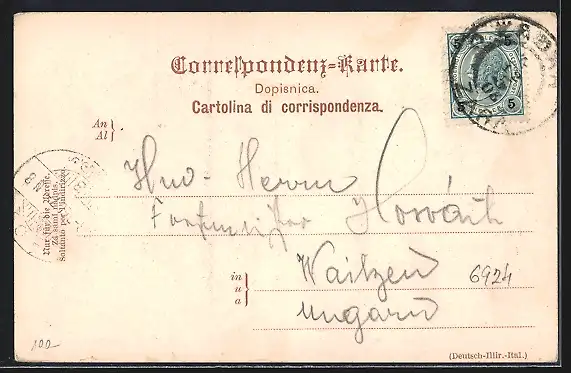 Correspondenz-Karte.
Dopisnica.
Cartolina di corrispondenza.
5 5
5 5
An
Al
Herrn
Horváth
Nur für die Adresse.
Za sami naslov.
Soltanto per l'indirizzo.
in
u
a
Waitzen
6924
Ungarn
100-
(Deutsch-Illir.-Ital.)